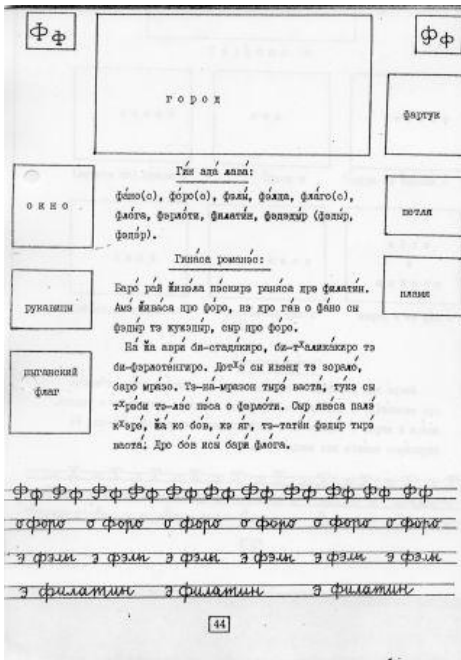 Ф ф
Ф ф
город
фартук
окно
петля
рукавицы
пламя
цыганский
флаг
Гин ада́ лава́:
фа́но(с), фо́ро(с), фэлы́, фэ́лда, фла́го(с),
фло́га, фэрло́ти, филати́н, фэдэды́р (фэды́р,
фэдэ́р).
Гина́са романэ́с:
Баро́ рай жинэ́ла пэ́скирэ рана́са дрэ филати́н.
Амэ́ жива́са про фо́ро, нэ дро га́в о фа́но сы
фэды́р тэ кукэды́р, сыр про фо́ро.
На́ жа аври́ би-стадякиро, би-тˣаликакиро тэ
би-фэрлотенгиро. Дотˣэ́ сы ивэ́нд тэ зорало́,
баро́ мра́зо. Тэ-на́-мразон тырэ́ васта́, ту́кэ сы
тˣрэ́би тэ-лэ́с пэ́са о фэрло́ти. Сыр явэ́са палэ́
кˣэрэ́, жа́ ко бов, кэ яг, тэ-татён фэды́р тырэ́
васта́. Дро бов исы́ бари́ фло́га.
Фф Фф Фф Фф Фф Фф Фф Фф Фф Фф
о форо о форо о форо о форо о форо о форо
э фэлы э фэлы э фэлы э фэлы э фэлы э фэлы
э филатин э филатин э филатин
44